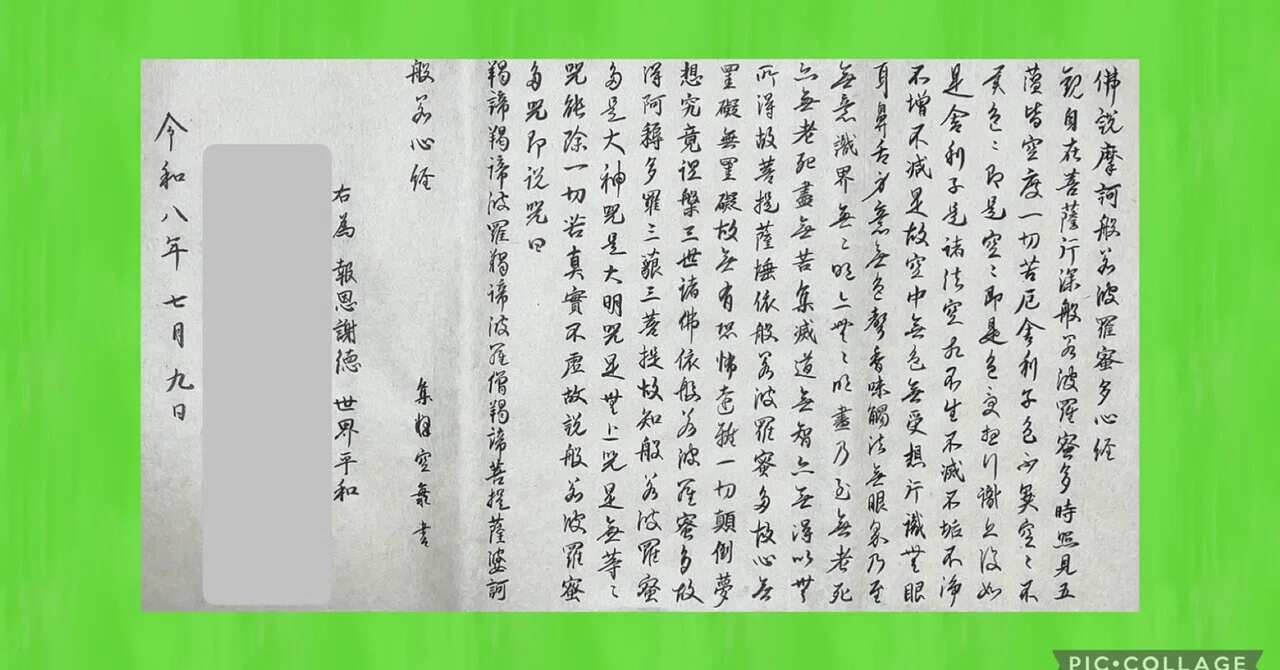 佛説摩訶般若波羅蜜多心経
観自在菩薩行深般若波羅蜜多時照見五
蘊皆空度一切苦厄舎利子色不異空々不
異色々即是空々即是色受想行識亦復如
是舎利子是諸法空相不生不滅不垢不浄
不増不减是故空中無色無受想行識無眼
耳鼻舌身意無色聲香味觸法無眼界乃至
無意識界無々明亦無々明盡乃至無老死
亦無老死盡無苦集滅道無智亦無得以無
所得故菩提薩埵依般若波羅蜜多故心無
罣礙無罣礙故無有恐怖遠離一切顛倒夢
想究竟涅槃三世諸佛依般若波羅蜜多故
得阿耨多羅三藐三菩提故知般若波羅蜜
多是大神咒是大明咒是無上咒是無等々
咒能除一切苦真實不虚故説般若波羅蜜
多咒即説咒曰
羯諦羯諦波羅羯諦波羅僧羯諦菩提薩婆訶
般若心経
集空書
右為 報恩謝徳 世界平和
令和八年七月九日
PIC•COLLAGE